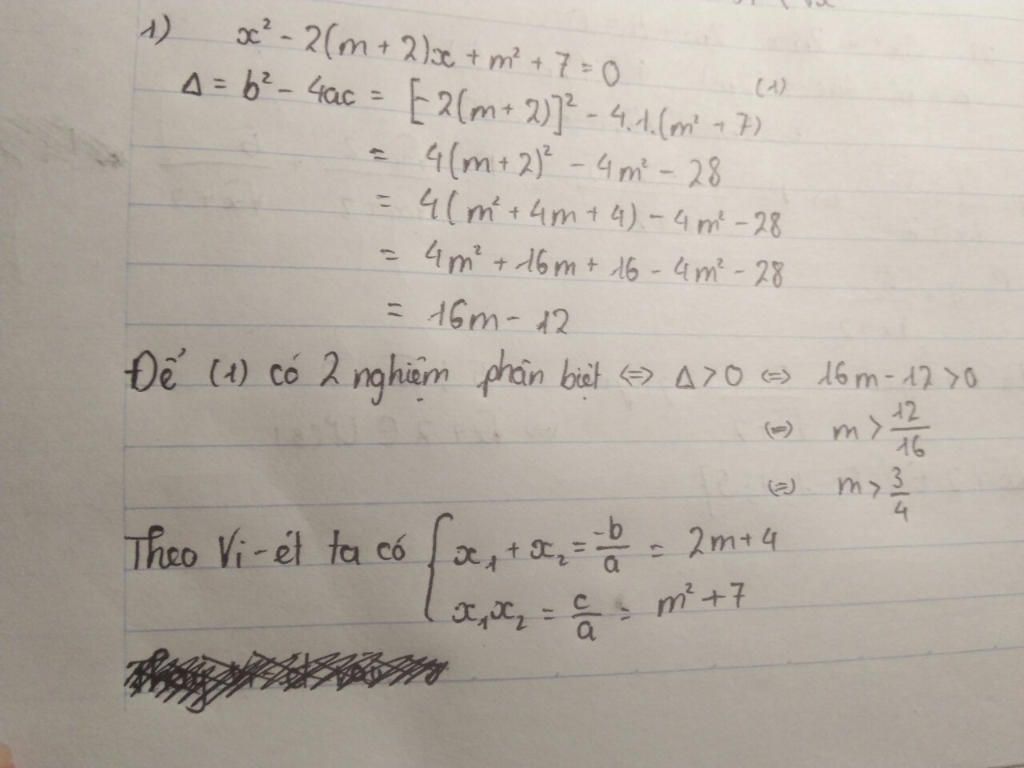 1) x² - 2(m + 2)x + m² + 7 = 0 (1)
Δ = b² - 4ac = [-2(m + 2)]² - 4.1.(m² + 7)
= 4(m + 2)² - 4m² - 28
= 4(m² + 4m + 4) - 4m² - 28
= 4m² + 16m + 16 - 4m² - 28
= 16m - 12
Để (1) có 2 nghiệm phân biệt ⇔ Δ > 0 ⇔ 16m - 12 > 0
⇔ m > 12/16
⇔ m > 3/4
Theo Vi-ét ta có { x₁ + x₂ = -b/a = 2m + 4
x₁x₂ = c/a = m² + 7